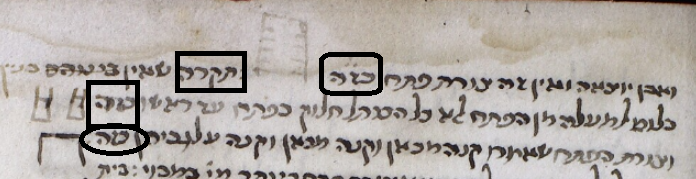 ואבן יוצאה ואין זה צורת פתח כזה תקרה שאין
כלום למעלה מן הפתח לא כל חלוק כפתח עד ראשו כזה
וצורת הפתח שאמרו קנה מכאן וקנה מכאן וקנה על גביהן כזה
בית